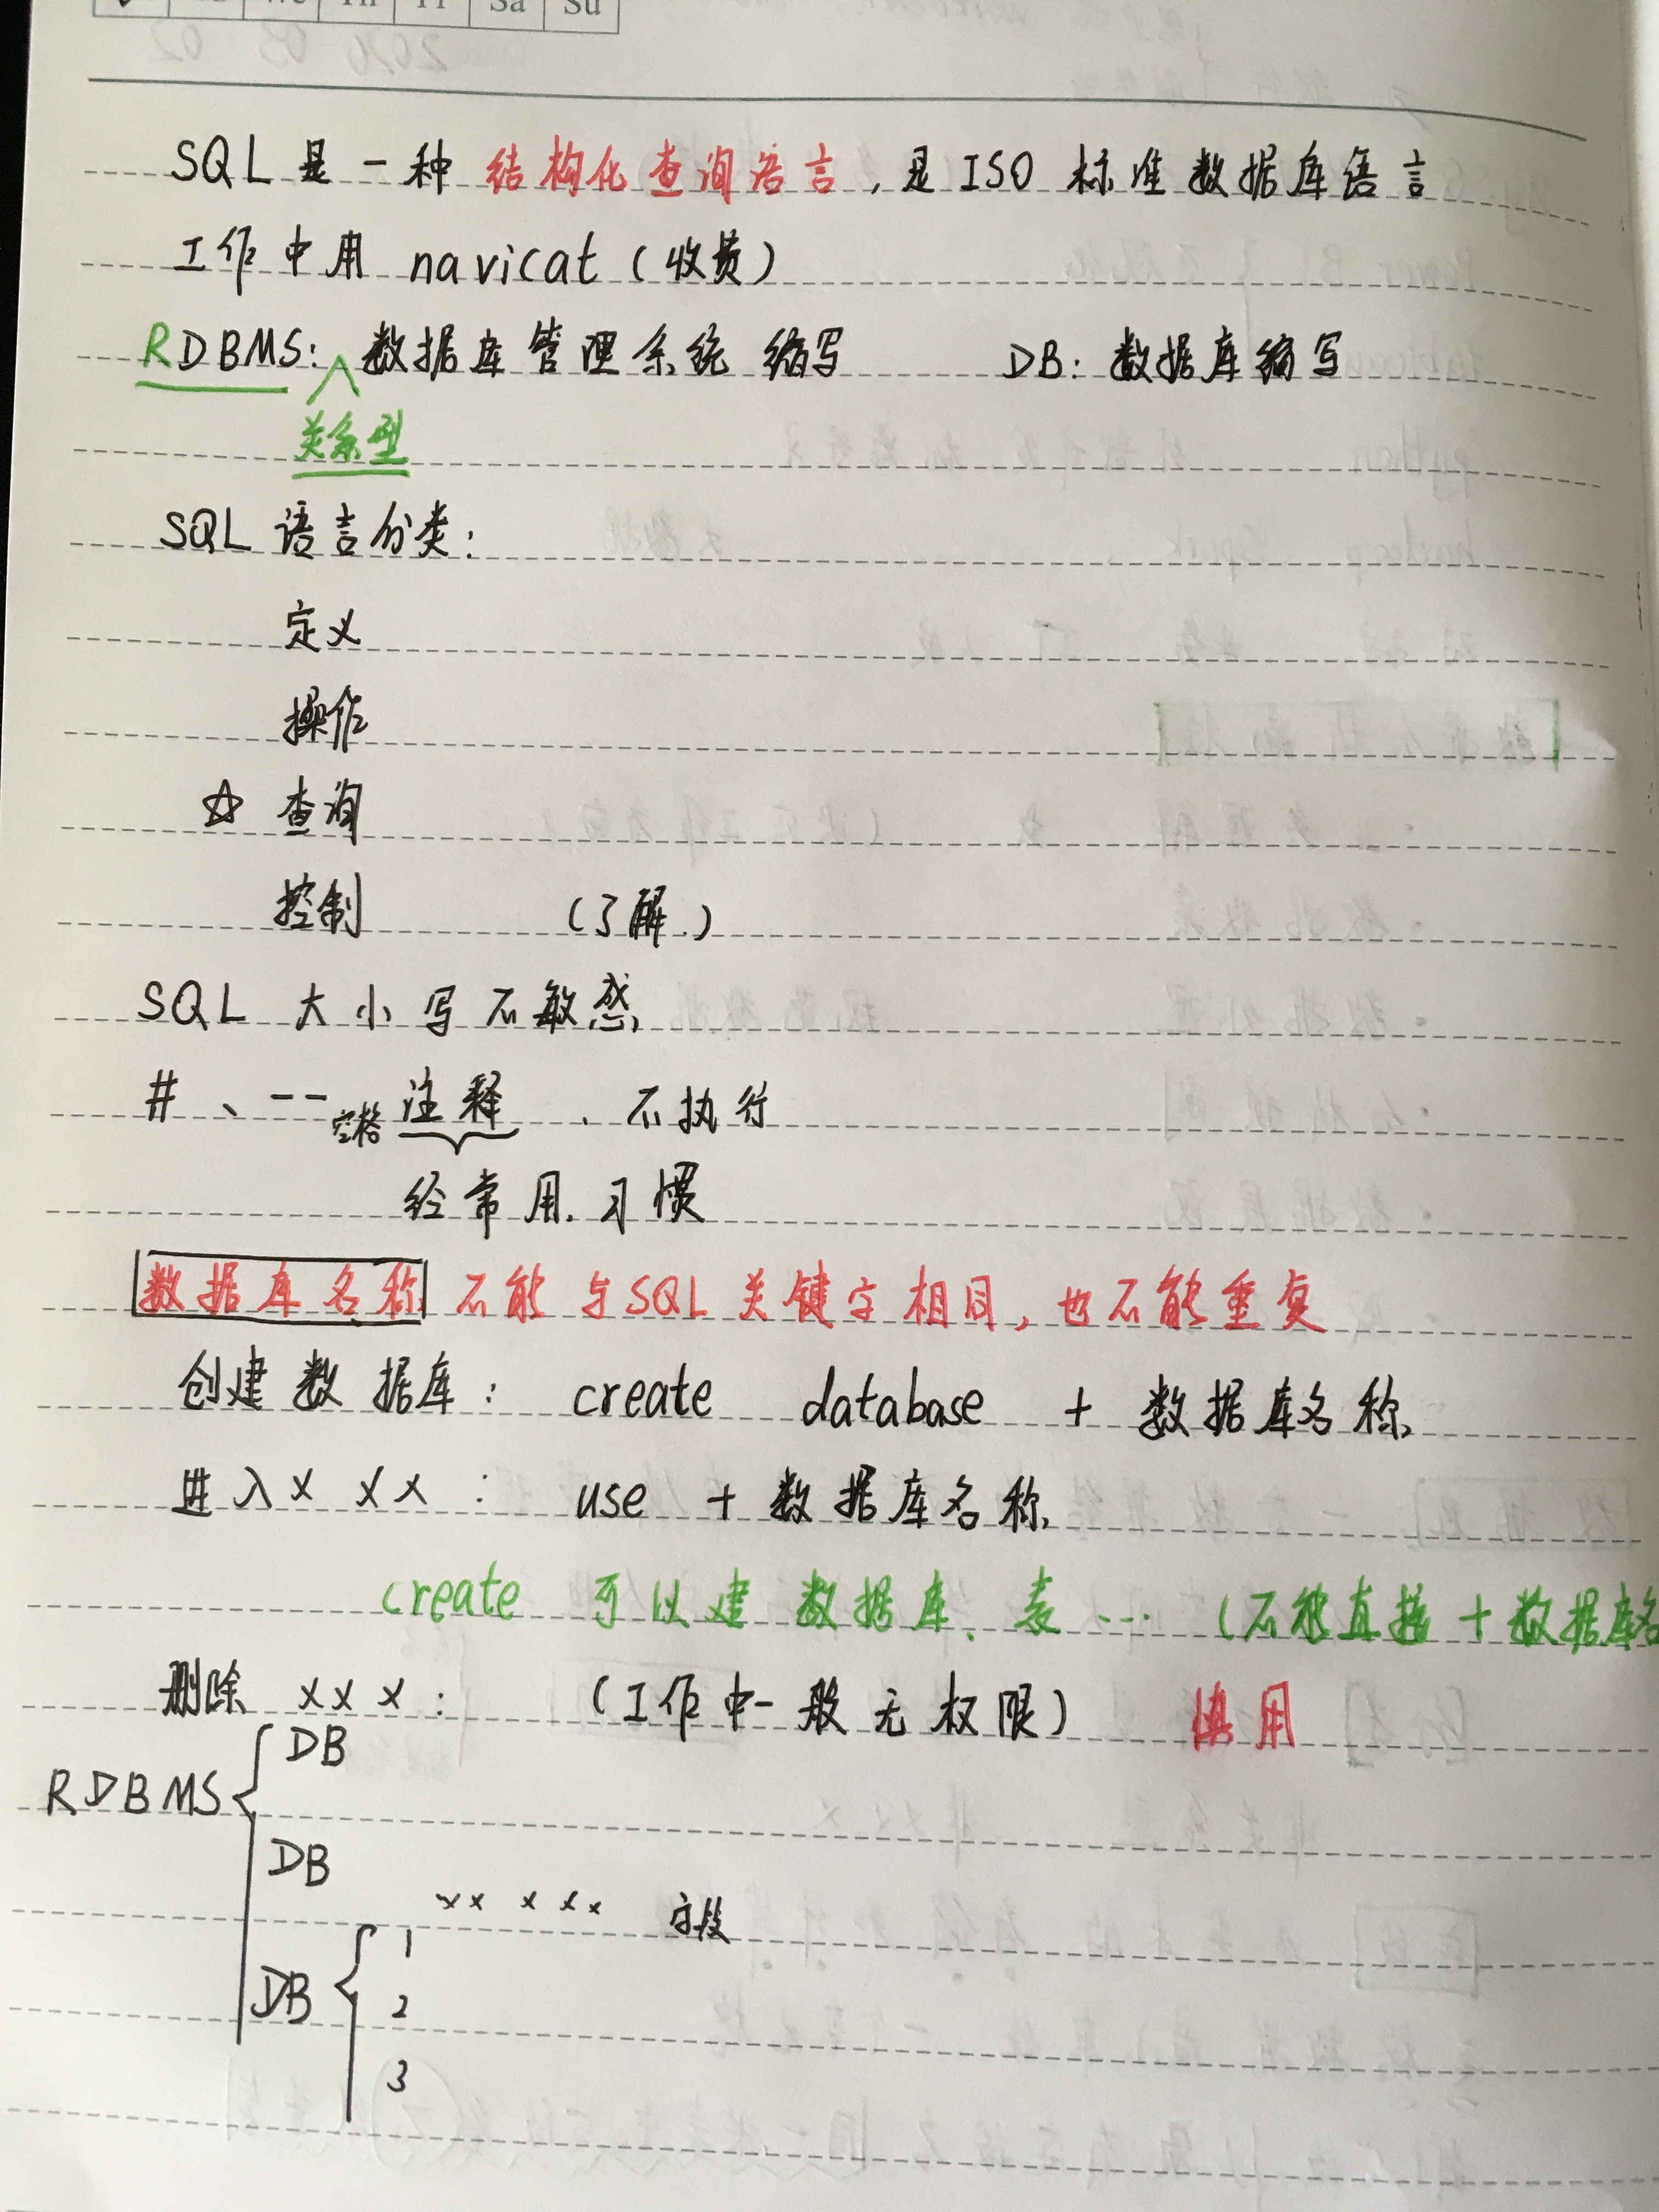 Th Fr Sa Su
SQL 是一种 结构化查询语言，是 ISO 标准数据库语言
工作中用 navicat（收费）
RDBMS：数据库管理系统 缩写 DB：数据库缩写
关系型
SQL 语言分类：
定义
操作
☆ 查询
控制 （了解）
SQL 大小写不敏感
# 、-- 空格 注释 、不执行
经常用. 习惯
数据库名称 不能与SQL关键字相同，也不能重复
创建数据库： create database + 数据库名称
进入××× ： use + 数据库名称
create 可以建数据库、表 … （不能直接+数据库名
删除 ×××： （工作中一般无权限） 慎用
RDBMS DB
DB
×× × × × 字段
DB 1
2
3